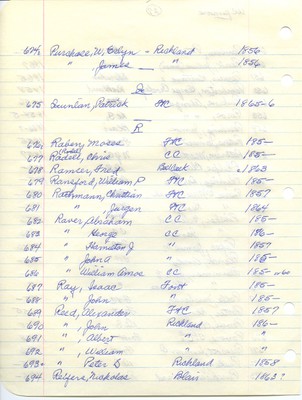 674 Purchase, W, - Richland 1856
" , James - " 1856
Q
675 Quinlan, Patrick FtC 1865-6
R
676 Raben, Mosse FtC 185-
677 Chris C.C. 185-
678 Ramser, Fred DeWeck 1863
679 Ransford, William P FtC 185-
680 Rathmann, Christian FtC 1857
681 " , Jurgen FtC 1864
682 Raver, Abraham C.C. 185-
683 " George C.C. 186-
684 " Hamilton J " 1857
685 " John A " 185-
686 " William Amos C.C. 185-
687 Ray, Isaac Font 185-
688 " John " 185-
689 Reed, Alexander FtC 1857
690 " , John Richland 186-
691 " , Albert "
692 " , William "
693 " Peter D Richland 1858
694 Reifers, Nicholas Blair 1862?